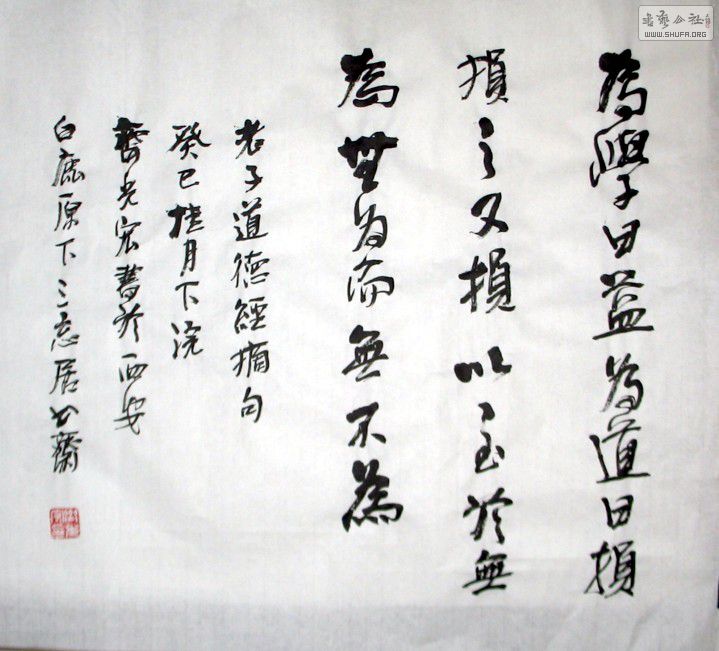 為學日益為道日損
損之又損以至於無
為無為而無不為
老子道德經摘句
癸巳桂月下浣
光宏書於西安
白鹿原下三忘居齋
書藝公社
WWW.SHUFA.ORG